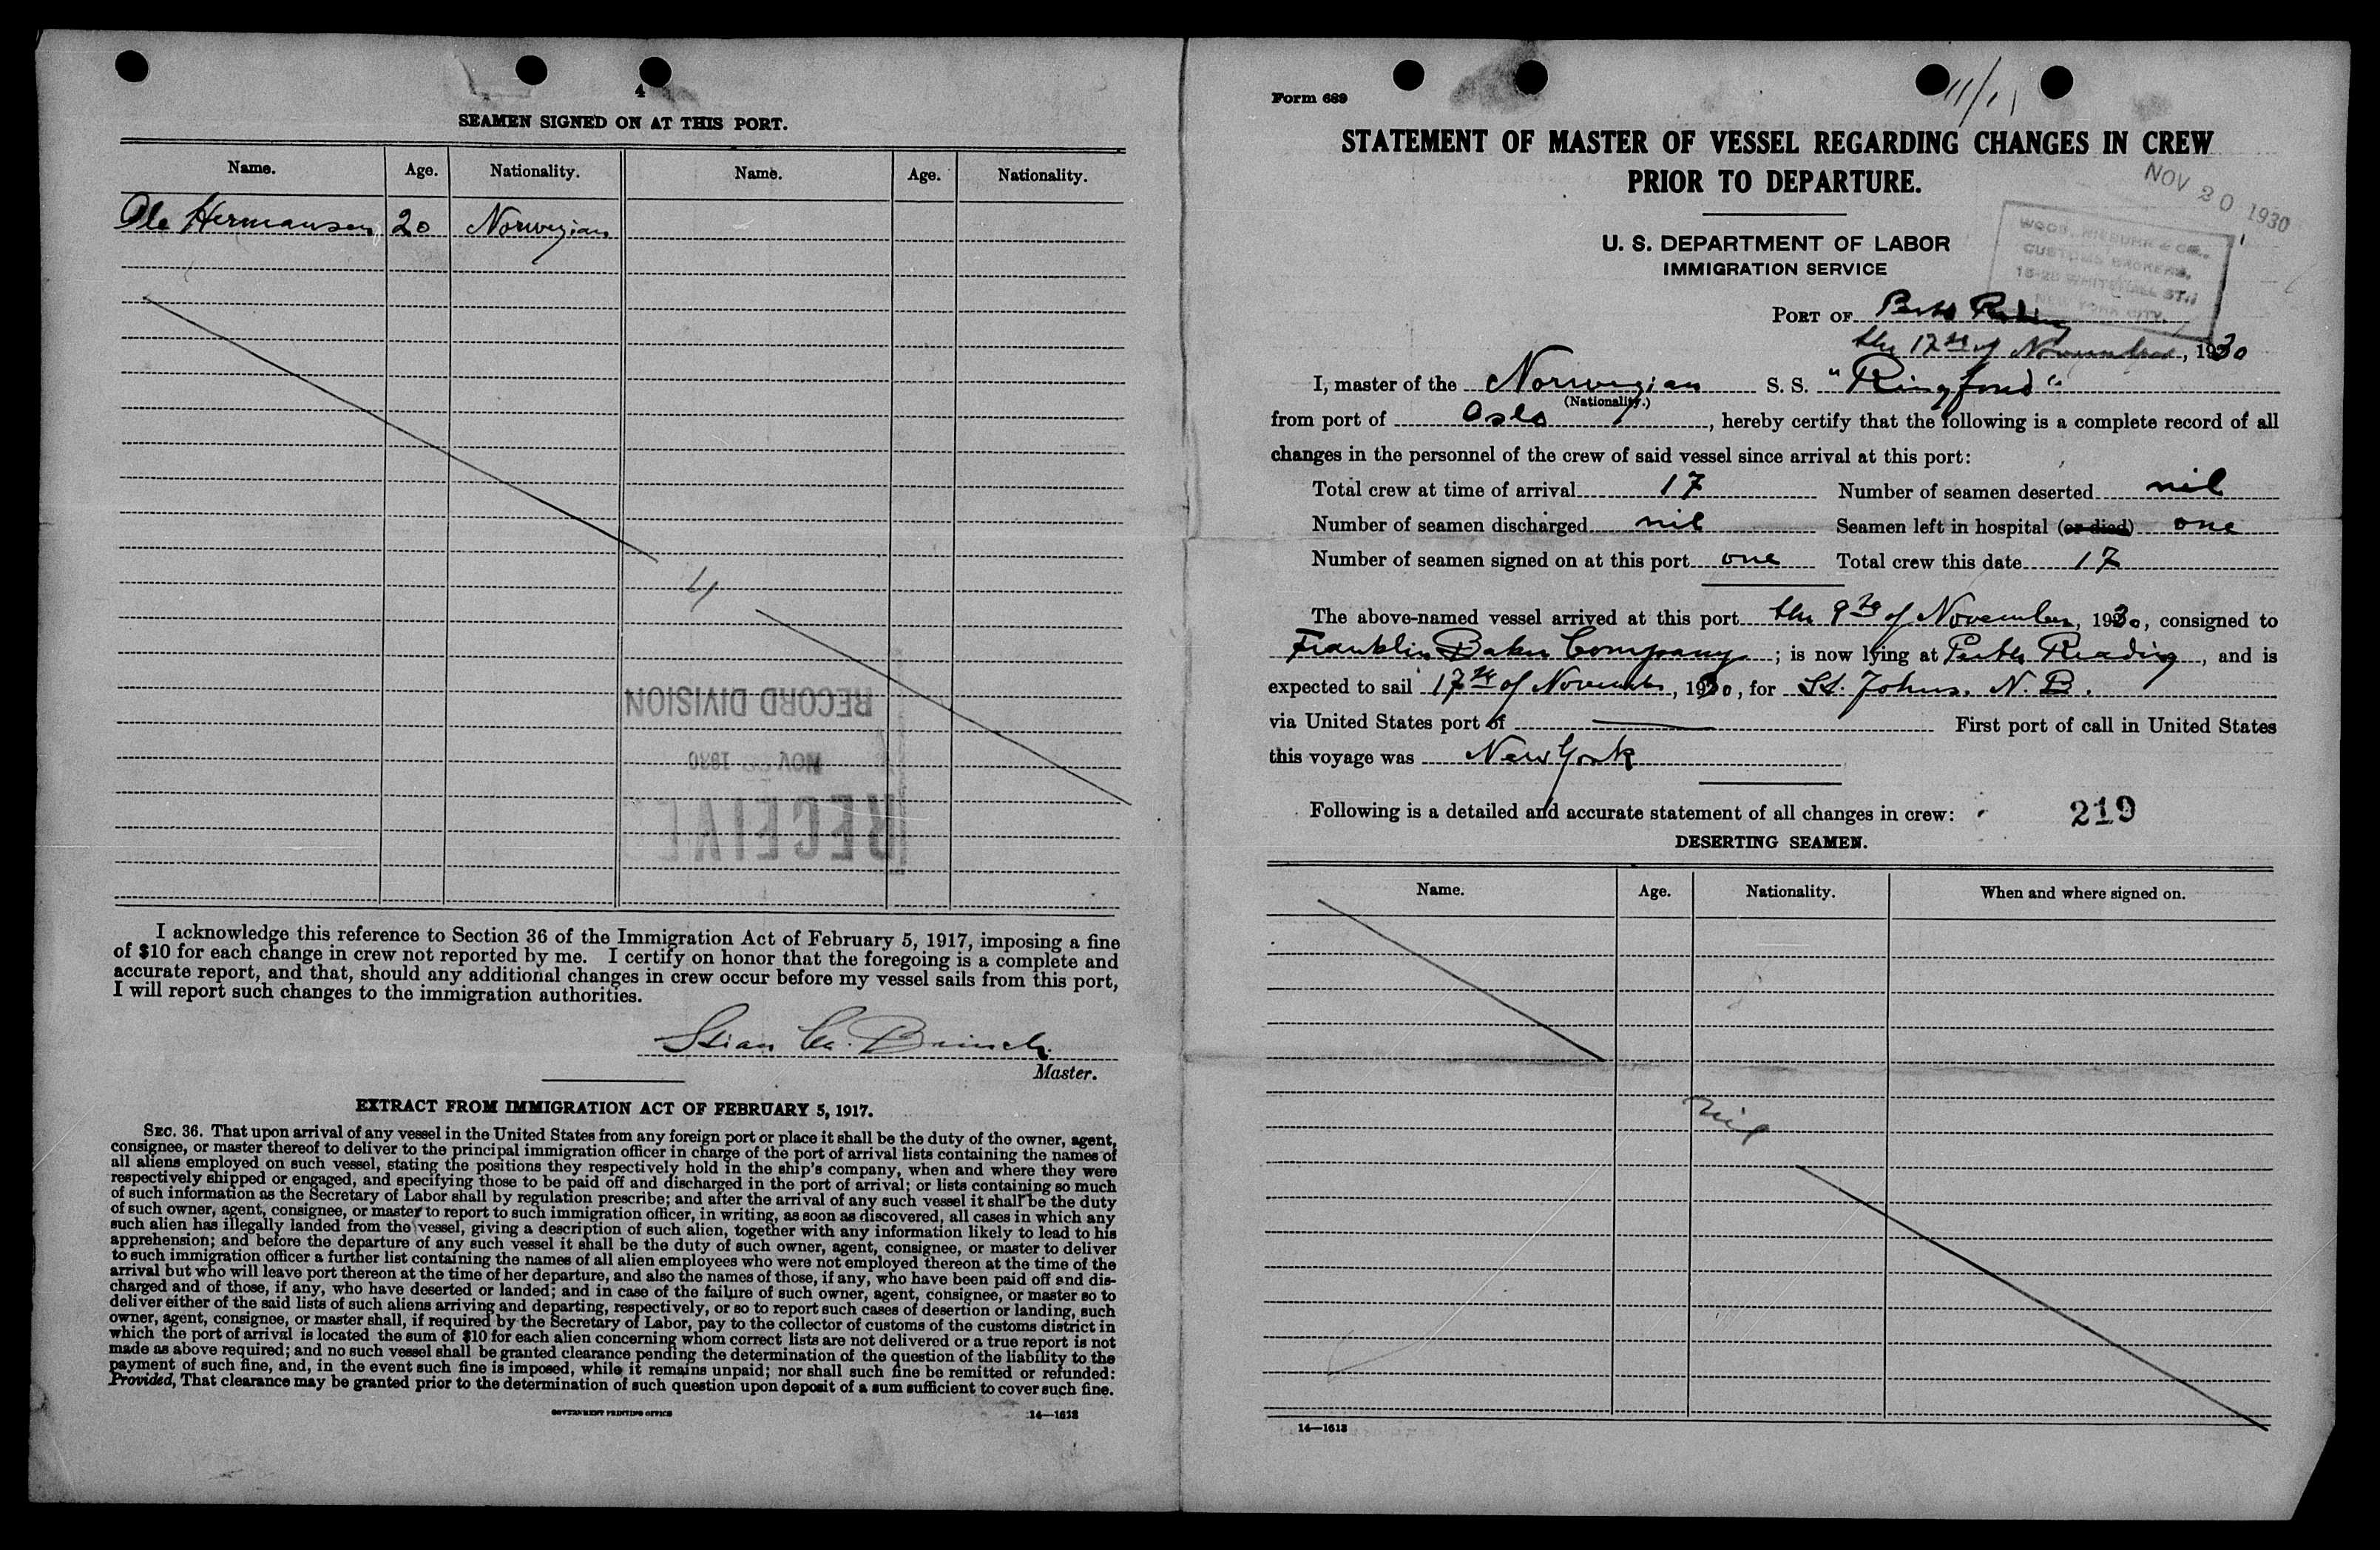 4
SEAMEN SIGNED ON AT THIS PORT.
Name. Age. Nationality. Name. Age. Nationality.
Ole Hermansen 20 Norwegian
RECORD DIVISION
NOV 1930
RECEIVED
I acknowledge this reference to Section 36 of the Immigration Act of February 5, 1917, imposing a fine
of $10 for each change in crew not reported by me. I certify on honor that the foregoing is a complete and
accurate report, and that, should any additional changes in crew occur before my vessel sails from this port,
I will report such changes to the immigration authorities.
Stian Chr. Brinch
Master.
EXTRACT FROM IMMIGRATION ACT OF FEBRUARY 5, 1917.
SEC. 36. That upon arrival of any vessel in the United States from any foreign port or place it shall be the duty of the owner, agent,
consignee, or master thereof to deliver to the principal immigration officer in charge of the port of arrival lists containing the names of
all aliens employed on such vessel, stating the positions they respectively hold in the ship's company, when and where they were
respectively shipped or engaged, and specifying those to be paid off and discharged in the port of arrival; or lists containing so much
of such information as the Secretary of Labor shall by regulation prescribe; and after the arrival of any such vessel it shall be the duty
of such owner, agent, consignee, or master to report to such immigration officer, in writing, as soon as discovered, all cases in which any
such alien has illegally landed from the vessel, giving a description of such alien, together with any information likely to lead to his
apprehension; and before the departure of any such vessel it shall be the duty of such owner, agent, consignee, or master to deliver
to such immigration officer a further list containing the names of all alien employees who were not employed thereon at the time of the
arrival but who will leave port thereon at the time of her departure, and also the names of those, if any, who have been paid off and dis-
charged and of those, if any, who have deserted or landed; and in case of the failure of such owner, agent, consignee, or master so to
deliver either of the said lists of such aliens arriving and departing, respectively, or so to report such cases of desertion or landing, such
owner, agent, consignee, or master shall, if required by the Secretary of Labor, pay to the collector of customs of the customs district in
which the port of arrival is located the sum of $10 for each alien concerning whom correct lists are not delivered or a true report is not
made as above required; and no such vessel shall be granted clearance pending the determination of the question of the liability to the
payment of such fine, and, in the event such fine is imposed, while it remains unpaid; nor shall such fine be remitted or refunded:
Provided, That clearance may be granted prior to the determination of such question upon deposit of a sum sufficient to cover such fine.
GOVERNMENT PRINTING OFFICE 14—1613
Form 689
STATEMENT OF MASTER OF VESSEL REGARDING CHANGES IN CREW
PRIOR TO DEPARTURE.
NOV 20 1930
WOOD, NIEBUHR & CO.
CUSTOMS BROKERS,
15-25 WHITEHALL ST.,
NEW YORK CITY.
U. S. DEPARTMENT OF LABOR
IMMIGRATION SERVICE
PORT OF Perth Reading
the 17th of November, 1930
I, master of the Norwegian S. S. "Ringfond"
(Nationality.)
from port of Oslo, hereby certify that the following is a complete record of all
changes in the personnel of the crew of said vessel since arrival at this port:
Total crew at time of arrival 17 Number of seamen deserted nil
Number of seamen discharged nil Seamen left in hospital (or died) one
Number of seamen signed on at this port one Total crew this date 17
The above-named vessel arrived at this port the 9th of November, 1930, consigned to
Franklin Baker Company; is now lying at Perth Reading, and is
expected to sail 17th of November, 1930, for St. Johns. N. B.
via United States port of First port of call in United States
this voyage was New York
Following is a detailed and accurate statement of all changes in crew: 219
DESERTING SEAMEN.
Name. Age. Nationality. When and where signed on.
nil
14—1613